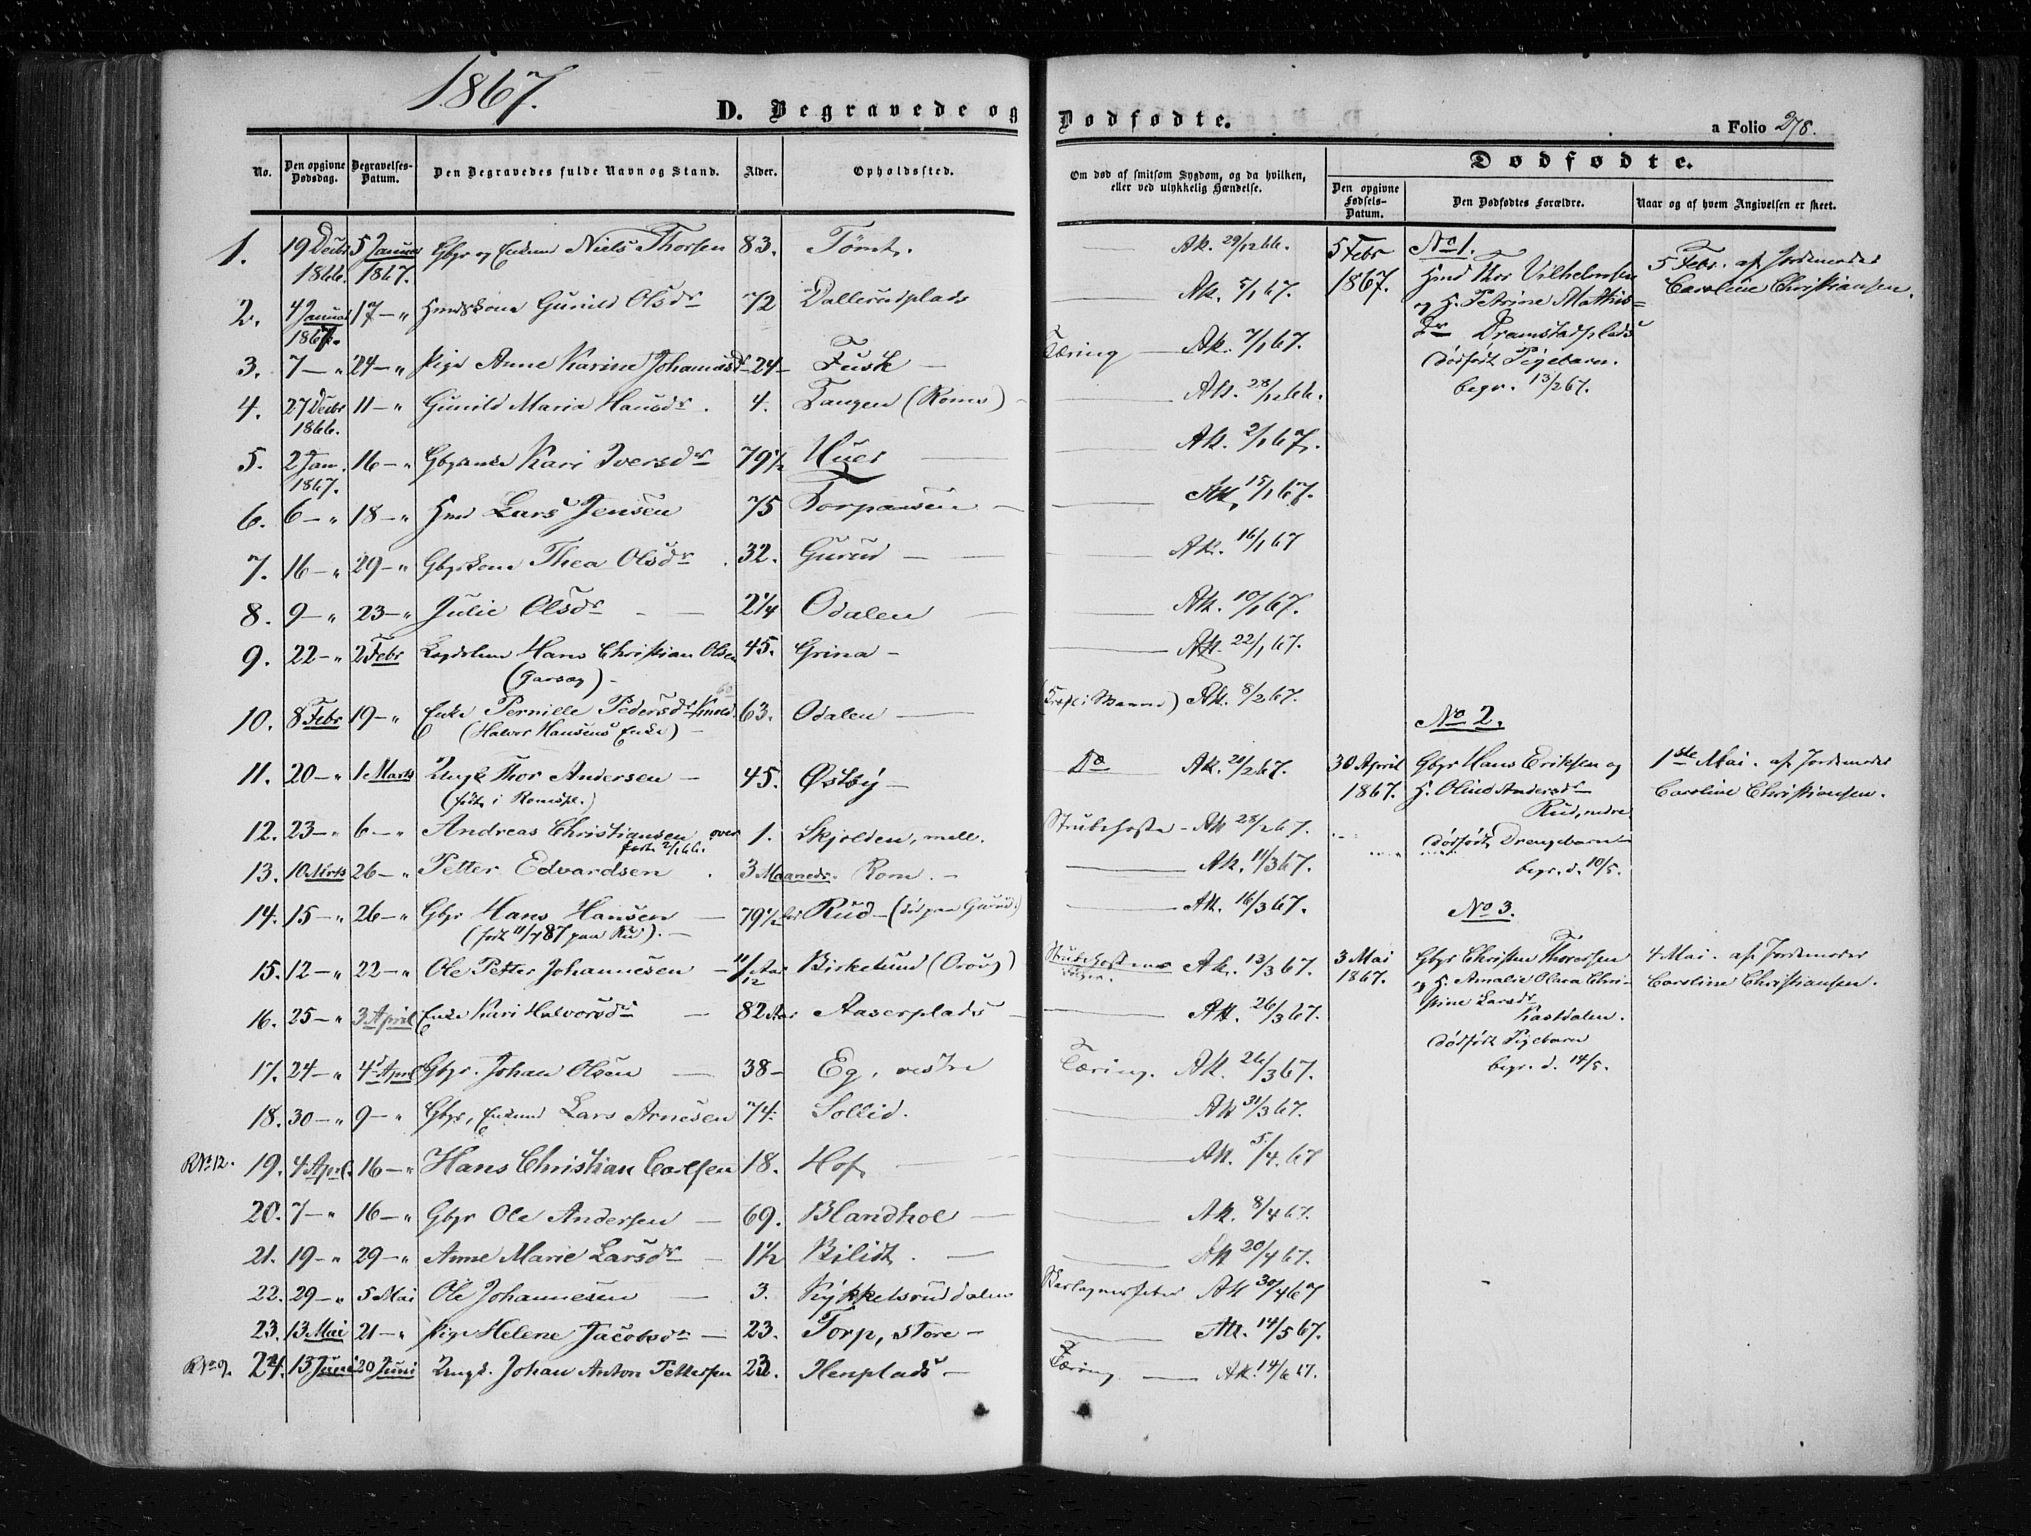 1867.
D. Begravede og Dødfødte.
a Folio 278.
No. Den opgivne Dødsdag. Begravelses-Datum. Den Begravedes fulde Navn og Stand. Alder. Opholdssted. Om død af smitsom Sygdom, og da hvilken, eller ved ulykkelig Hændelse.
Dødfødte.
Den opgivne Fødsels-Datum. Den Dødfødtes Forældre. Naar og af hvem Angivelsen er skeet.
1. 19 Decbr 1866. 5 Januar 1867. Gbgr og Enkem Niels Thorsen 83. Tømt. Ak. 29/12 66.
2. 4 Januar 1867. 17 – " Hmdskone Gunild Olsdr 72 Dallerudplads Ak. 5/1 67.
3. 7 – " 24 – " Pige Anne Karine Johannesdr 24 – Fusk – Tæring – Ak. 7/1 67.
4. 27 Decbr 1866. 11 – " Gunild Maria Hansdr. 4. Tangen (Roms) – Ak. 28/12 66.
5. 2 Jan. 1867. 16 – " Gbgrenke Kari Iversdr 79 1/2 Huer – Ak. 2/1 67.
6. 6 – " 18 – " Hmd Lars Jensen 75 Torpansen – Ak. 15/1 67.
7. 16 – " 29 – " Gbgrkone Thea Olsdr. 32. Gurud – Ak. 16/1 67
8. 9 – " 23 – " Julie Olsdr – 2 1/4 Odalen – Ak. 10/1 67.
9. 22 – " 2 Febr Lægdslem Hans Christian Olsen 45. Grina – Ak. 22/1 67.
10. 8 Febr 19 – " Enke Pernille Pedersdr 63. Odalen – Ak. 8/2 67.
(Halvor Hansens Enke) –
11. 20 – " 1 Marts Ungk Thor Andersen – 45. Østby – Do Ak. 21/2 67.
(født i Romspl.)
12. 23 – " 6 – " Andreas Christiansen over 1. Skjolden, mell. Strubehoste – Ak 28/2 67.
født 2/1 66.
13. 10 Marts 26 – " Petter Edvardsen. 3 Maaneder. Rom. – Ak. 11/3 67.
14. 15 – " 26 – " Gbgr Hans Hansen – 79 1/2 Rud – (død paa Gurud) Ak. 16/3 67.
(født 11/7 87 paa Rud). –
15. 12 – " 22 – " Ole Petter Johannesen – 11/12 Aar Birkelund (Oroug) Strubehostens Følger. Ak. 13/3 67.
16. 25 – " 3 April Enke Kari Halvorsdr – 82 Aar Aaserplads – Ak. 26/3 67.
17. 24 – " 4 April Gbgr. Johan Olsen – 38 – Eg, vestre Tæring. Ak. 26/3 67.
18. 30 – " 9 – " Gbgr, Enkem Lars Arnesen 74. Sollid. Ak 31/3 67.
R No 12. 19. 4 April. 16 – " Hans Christian Carlsen 18. Hof – Ak. 5/4. 67
20. 7 – " 16 – " Gbgr Ole Andersen – 69. Blandhol – Ak. 8/4 67.
21. 19 – " 29 – " Anne Marie Larsdr – 1 1/2 Bilidt. – Ak 20/4 67.
22. 29 – " 5 Mai Ole Johannesen – 3. Nykkelsruddalen Skarlagensfeber Ak 30/4 67
23. 13 Mai 21 – " Pige Helene Jacobsdr – 23. Torp, store – Ak. 14/5 67.
R No 9. 24. 13 Juni 20 Juni Ungk. Johan Anton Pettersen 23. Henplads – Tæring – Ak. 14/6 67.
5 Febr 1867. No 1.
Hmd Thor Vilhelmsen
og H. Petrine Mathis-
dr Dramstadplads
dødfødt Pigebarn.
begr. 13/2 67.
5 Febr. af Jordemoder
Caroline Christiansen.
No 2.
30 April 1867. Gbgr Hans Eriksen og
H. Oline Andersdr
Rud, nedre
dødfødt Drengebarn
begr. d. 10/5.
1ste Mai. af Jordemoder
Caroline Christiansen.
No 3.
3 Mai 1867. Gbgr Christen Thoresen
og H. Amalie Olava Chri-
stine Larsdr
Kastdalen.
dødfødt Pigebarn
begr. d. 14/5.
4 Mai. af Jordemoder
Caroline Christiansen.